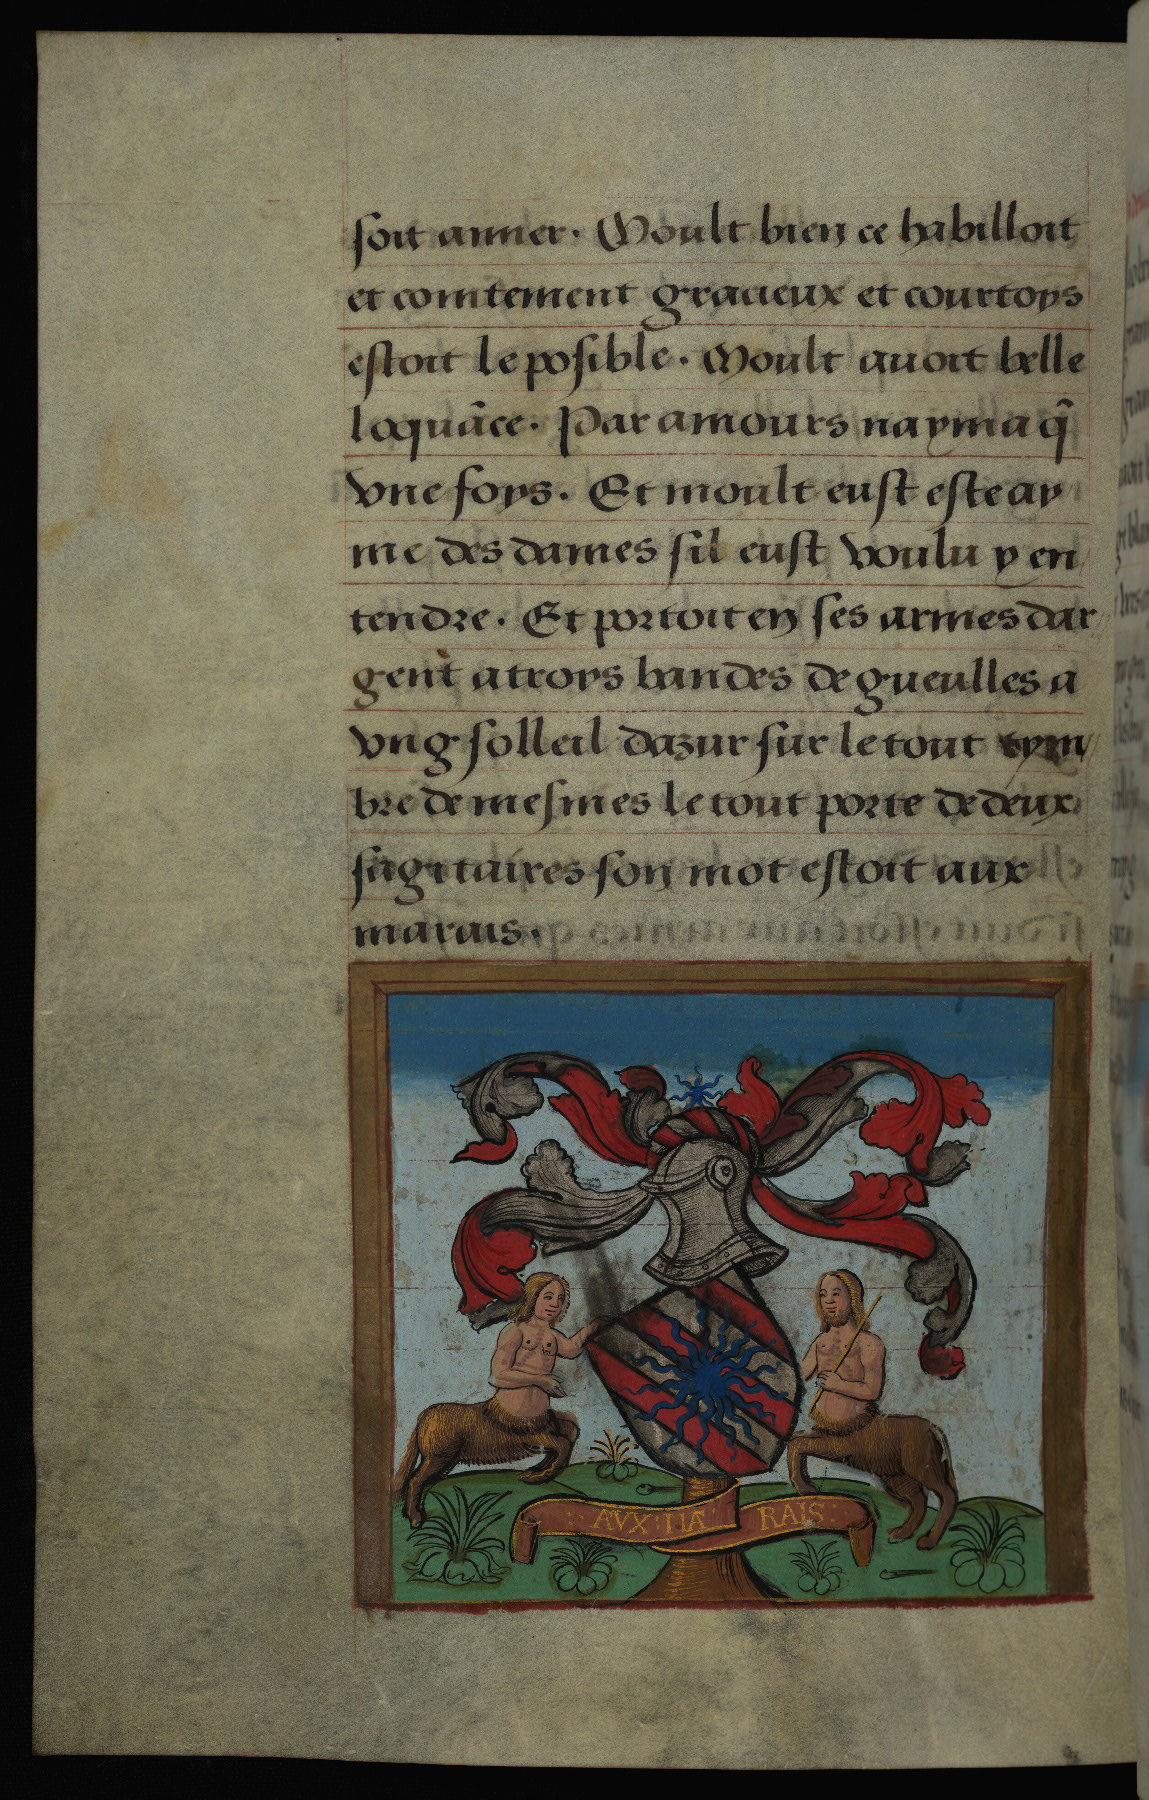 soit amer. Moult bien ce habilloit
et cointement gracieux et courtoys
estoit le posible. Moult avoit belle
loquãce. Par amours nayma q̃
vne foys. Et moult eust este ay
me des dames sil eust voulu y en/
tendre. Et portoit en ses armes dar/
gent a troys bandes de gueulles a
vng solleil dazur sur le tout tym/
bre de mesmes le tout porte de deux
sagitaires son mot estoit aux
marais.
AVX : MA RAIS :